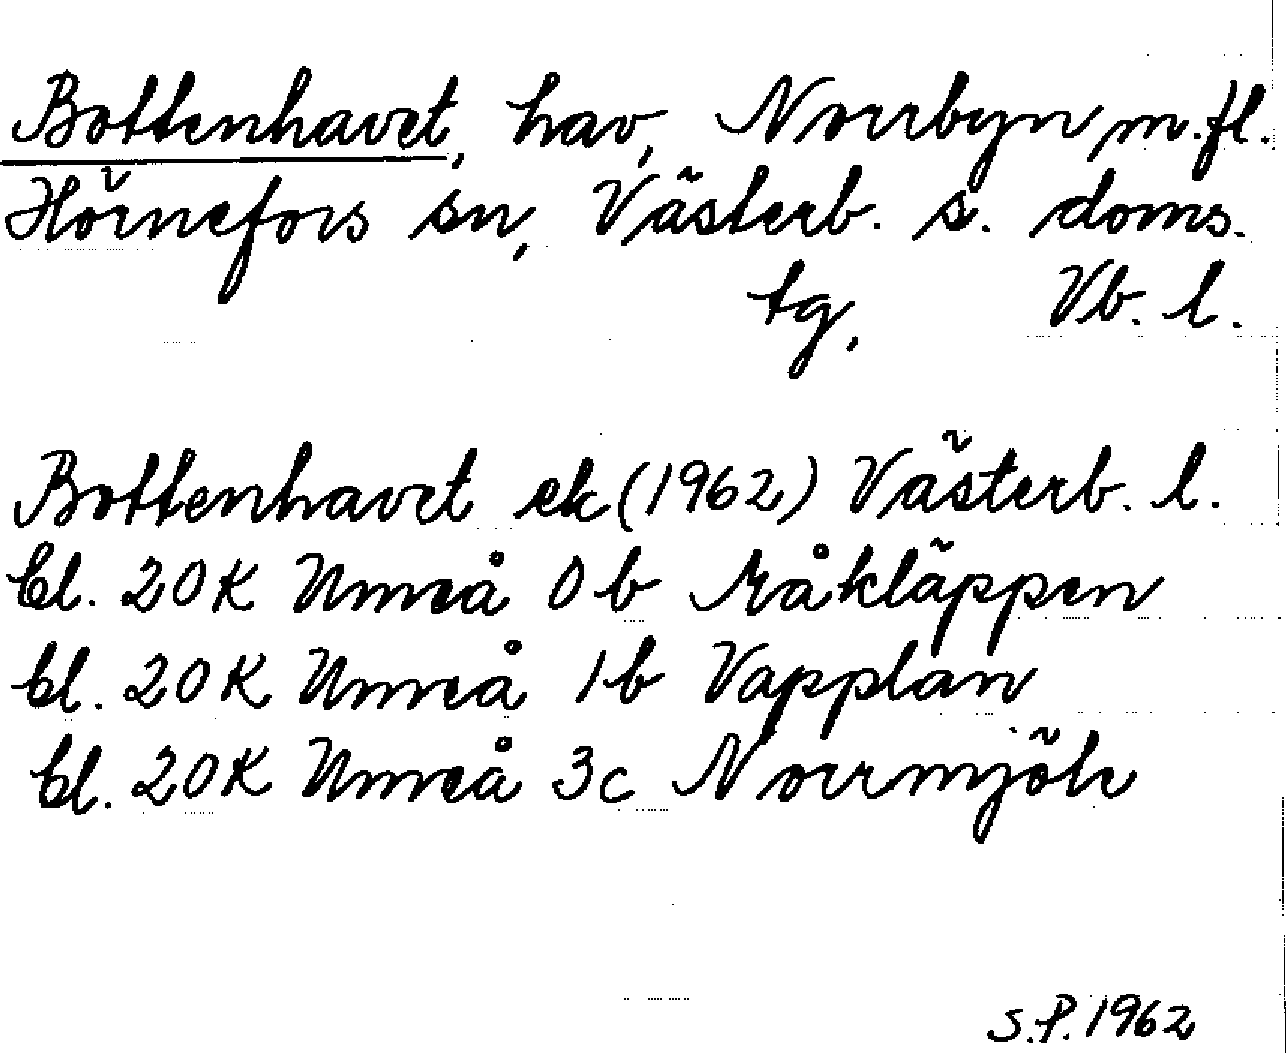 Bottenhavet, hav, Norrbyn m.fl.
Hörnefors sn, Västerb. s. doms.
tg, Vb. l.
Bottenhavet ek (1962) Västerb. l.
bl. 20K Umeå 0b Råkläppen
bl. 20K Umeå 1b Vapplan
bl. 20K Umeå 3c Norrmjöle
S.P. 1962